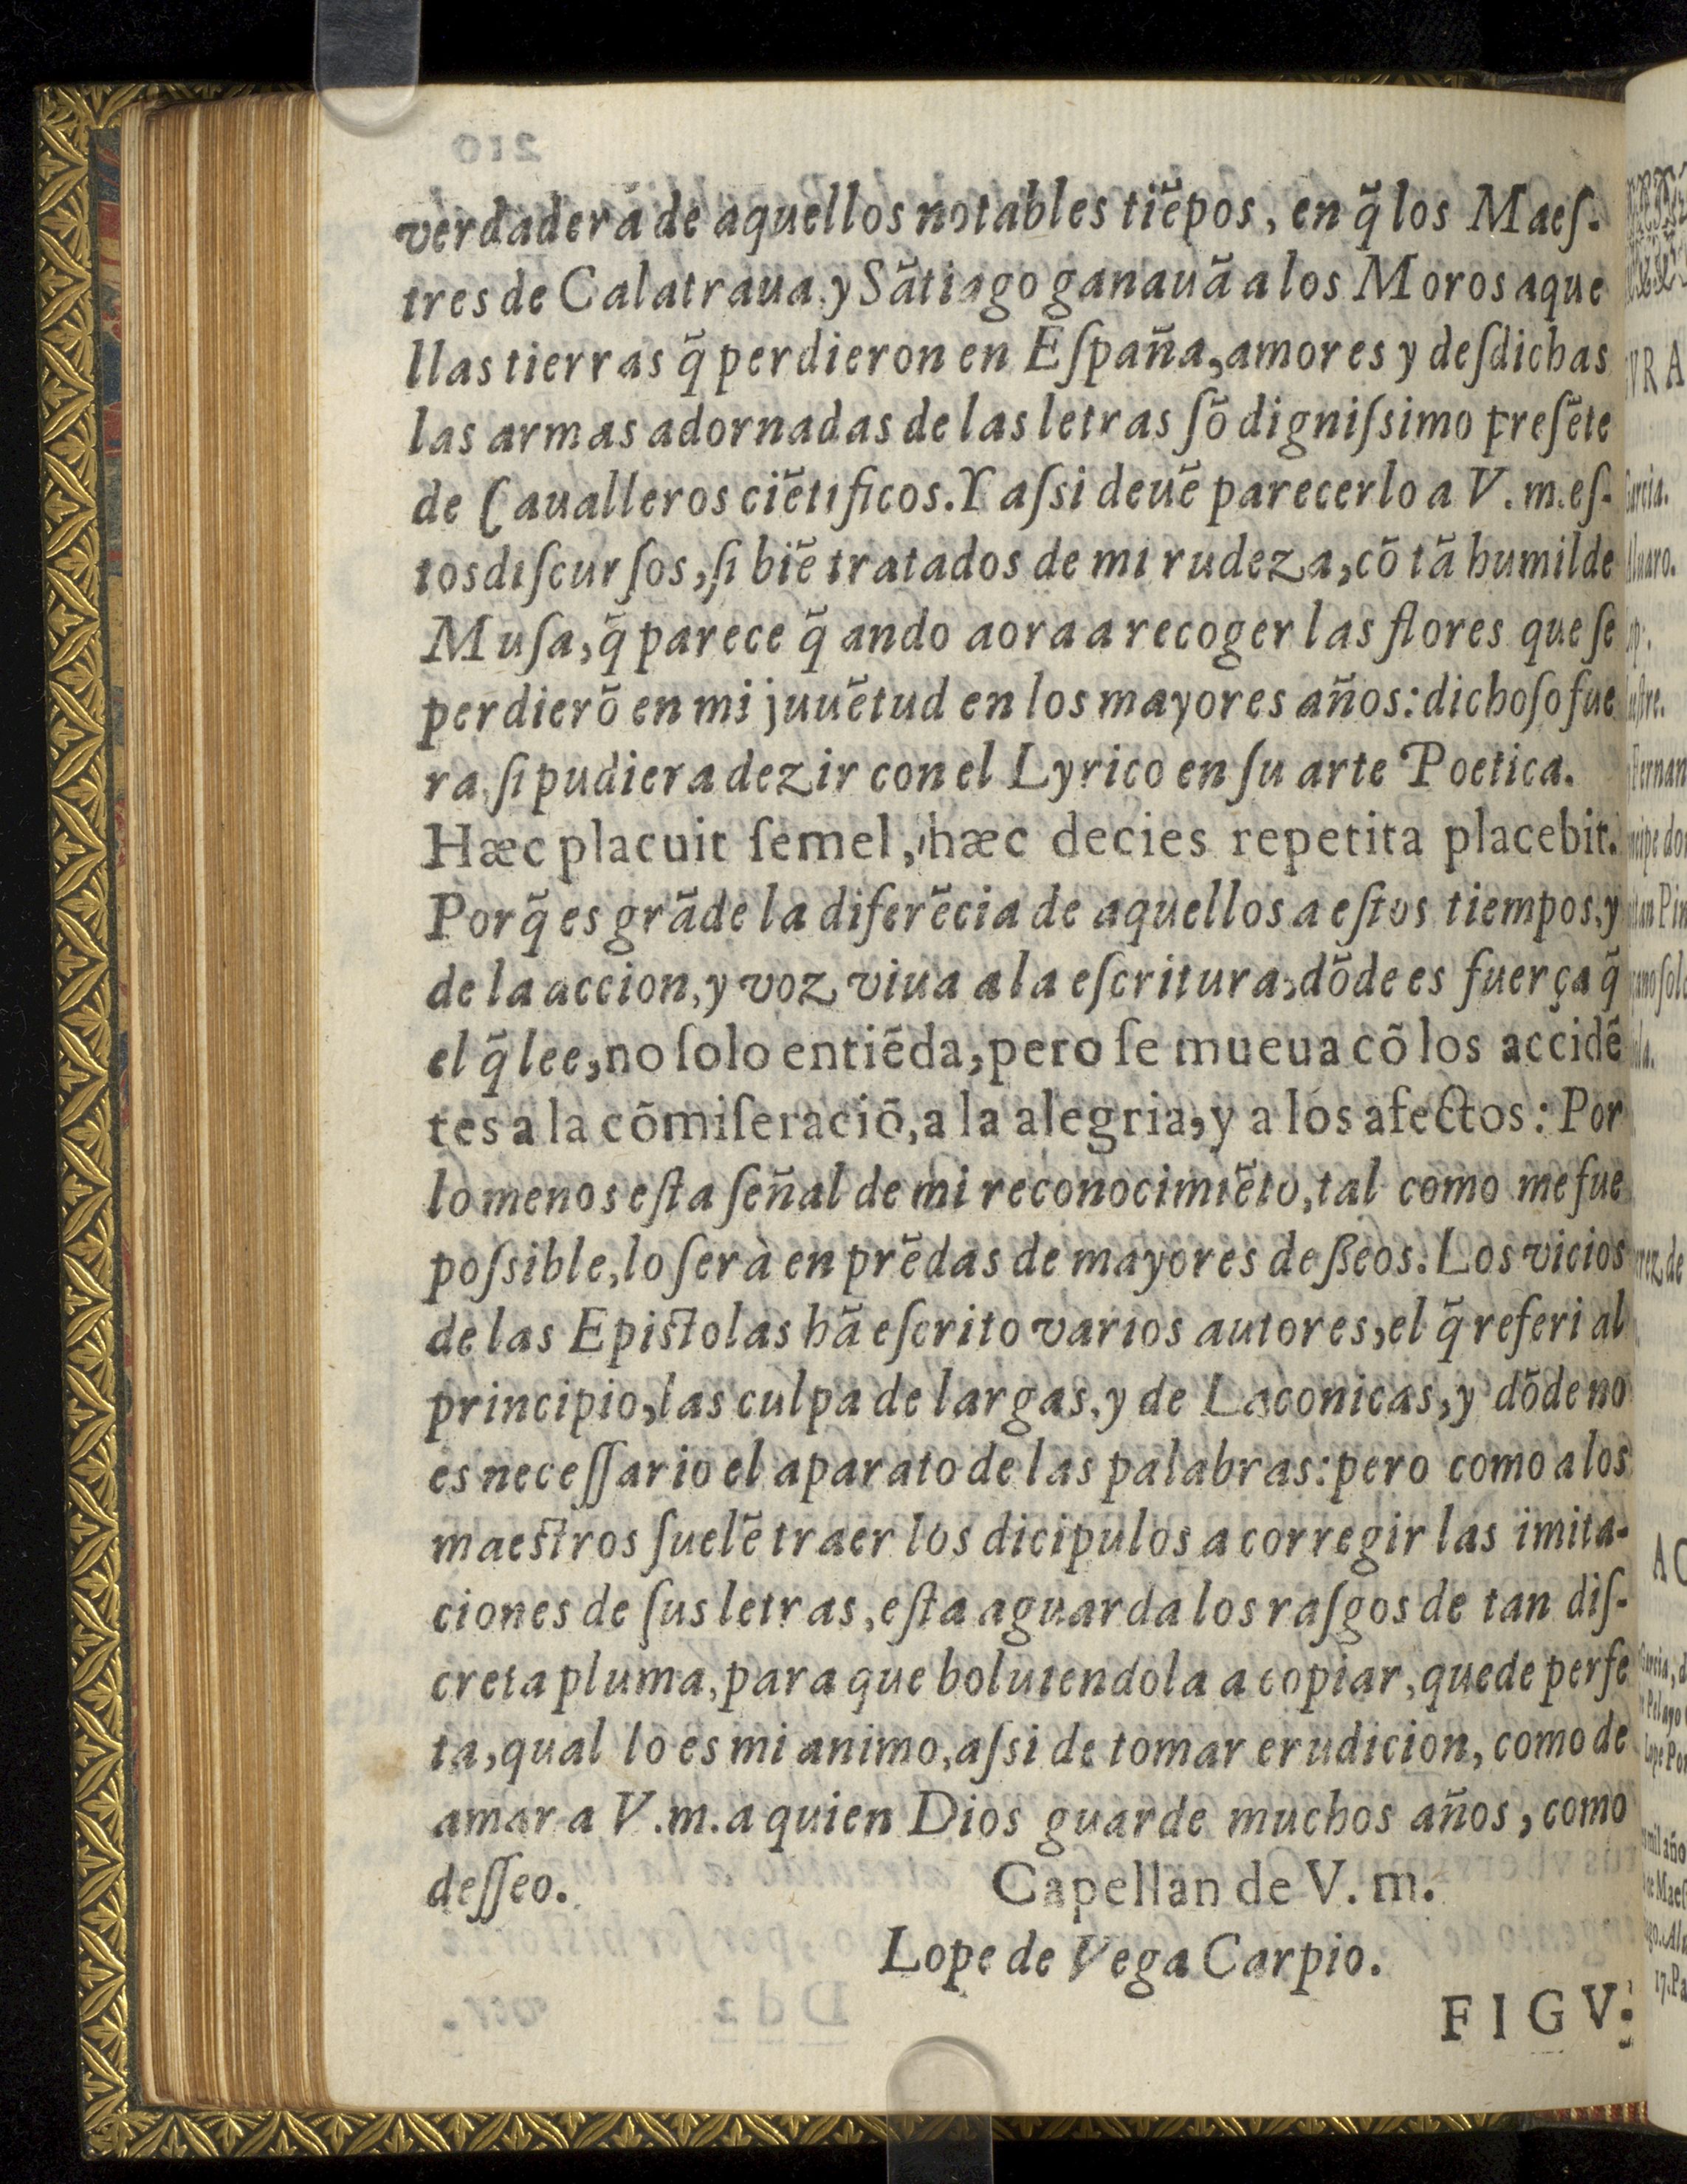 verdadera de aquellos notables tiẽpos, en q̃ los Maeſ-
tres de Calatraua, y Sãtiago ganauã a los Moros aque
llas tierras q̃ perdieron en Eſpaña, amores y deſdichas
las armas adornadas de las letras ſõ digniſsimo preſẽte
de Caualleros ciẽtificos. Y aſsi deuẽ parecerlo a V. m. eſ-
tos diſcurſos, ſi biẽ tratados de mi rudeza, cõ tã humilde
Muſa, q̃ parece q̃ ando aora a recoger las flores que ſe
perdierõ en mi juuẽtud en los mayores años: dichoſo fue
ra, ſi pudiera dezir con el Lyrico en ſu arte Poetica.
Hæc placuit ſemel, hæc decies repetita placebit.
Porq̃ es grãde la diferẽcia de aquellos a eſtos tiempos, y
de la accion, y voz viua a la eſcritura, dõde es fuerça q̃
el q̃ lee, no ſolo entiẽda, pero ſe mueua cõ los accidẽ
tes a la cõmiſeraciõ, a la alegria, y a los afectos: Por
lo menos eſta ſeñal de mi reconocimiẽto, tal como me fue
poſsible, lo ſerà en prẽdas de mayores deßeos. Los vicios
de las Epiſtolas hã eſcrito varios autores, el q̃ referi al
principio, las culpa de largas, y de Laconicas, y dõde no
es neceſſario el aparato de las palabras: pero como a los
maeſtros ſuelẽ traer los dicipulos a corregir las imita-
ciones de ſus letras, eſta aguarda los raſgos de tan diſ-
creta pluma, para que boluiendola a copiar, quede perfe
ta, qual lo es mi animo, aſsi de tomar erudicion, como de
amar a V. m. a quien Dios guarde muchos años, como
deſſeo. Capellan de V. m.
Lope de Vega Carpio.
FIGV: